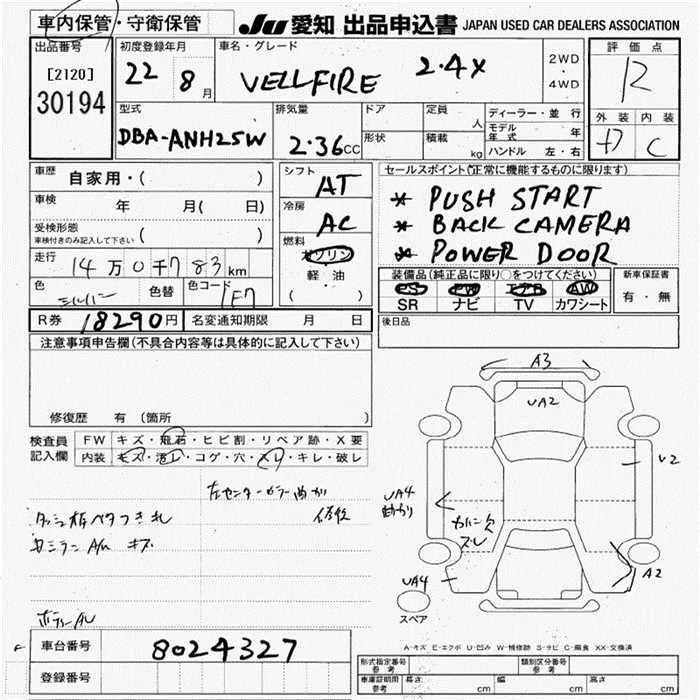 車内保管・守衛保管
JU 愛知 出品申込書 JAPAN USED CAR DEALERS ASSOCIATION
出品番号
[2120]
30194
初度登録年月
22 8月
車名・グレード
VELLFIRE 2.4X
2WD
・
4WD
評価点
R
外装 内装
C
型式
DBA-ANH25W
排気量
2.36CC
ドア
形状
定員 人
積載 kg
ディーラー・並行
モデル年式 年
ハンドル 左・右
車歴
自家用・( )
車検
年 月( 日)
受検形態
車検付きのみ記入して下さい ( )
走行
14万0千783km
色
シルバー
色替
色コード
1F7
シフト
AT
冷房
AC
燃料
ガソリン
軽油
( ・ )
セールスポイント(正常に機能するものに限ります)
* PUSH START
* BACK CAMERA
* POWER DOOR
装備品(純正品に限り○をつけてください)
PS PW エアB AW
SR ナビ TV カワシート
新車保証書
有・無
R券 18290円
名変通知期限 月 日
後日品
注意事項申告欄(不具合内容等は具体的に記入して下さい)
修復歴 有(箇所
検査員記入欄
FW キズ・飛石・ヒビ割・リペア跡・X要
内装 キズ・汚レ・コゲ・穴・スレ・キレ・破レ
左センターピラー曲がり
修後
ダッシュ板ベタつき
キズ
A3
UA2
U2
UA4
曲がり
スレ
UA4
A2
スペア
A-キズ E-エクボ U-凹み W-補修跡 S-サビ C-腐食 XX-交換済
車台番号 8024327
登録番号
形式指定番号
参考
類別区分番号
参考
車庫証明用
参考
長さ cm 幅 cm 高さ cm